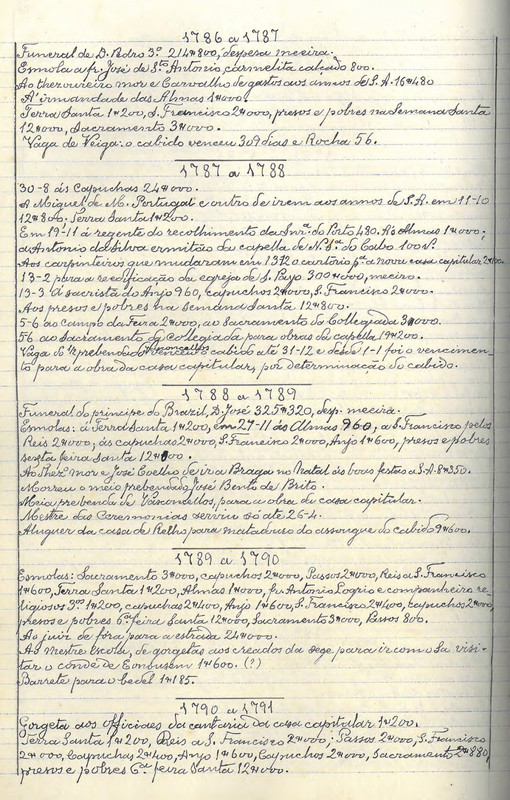 1786 a 1787
Funeral de D. Pedro 3º 214#800, despesa meeira.
Esmola a fr. José de Stº Antonio, carmelita calçado 800.
Ao thezoureiro mor e Carvalho de gastos aos annos de S.A. 16#480
A' irmandade das Almas 1#000.
Terra Santa 1#200, S. Francisco 2#000, presos e pobres na Semana Santa
12#000, Sacramento 3#000.
Vaga de Veiga: o cabido venceu 309 dias e Rocha 56.
1787 a 1788
30-8 ás Capuchas 24#000.
A Miguel de M. Portugal e outro de irem aos annos de S.A. em 11-10
12#800. Terra Santa 1#200.
Em 19-11 á regente do recolhimento da Snrª. do Porto 480. Ás Almas 1#000;
a Antonio da Silva ermitão da capella de N. Sª. do Cabo 100 rs.
Aos carpinteiros que mudaram em 13-12 o cartório pª a nova casa capitular 2#400.
13-2 para a reedificação da egreja de S. Payo 300#000, meeiro.
13-3 Á sacristia do Anjo 960, capuchos 2#000, S. Francisco 2#000.
Aos presos e pobres na semana Santa 12#800.
5-6 ao campo da Feira 2#000, ao Sacramento da Collegiada 3#000.
56 ao Sacramento da Collegiada para obras da capella 19#200.
Vaga da ½ prebenda de Vasconcellos: cabido até 31-12 e desde 1-1 foi o vencimen-
to para a obra da casa capitular, por determinação do cabido.
1788 a 1789
Funeral do principe do Brazil, D. José 325#320, desp. meeira.
Esmolas: á Terra Santa 1#200, em 27-11 ás Almas 960, a S. Francisco pelos
Reis 2#000; ás capuchas 2#000, S. Francisco 2#000, Anjo 1#600, presos e pobres
sexta feira Santa 12#000.
Ao thezº mor e José Coelho de ir a Braga no Natal ás boas festas a S.A. 8#350.
Morreu o meio prebendado José Bento de Brito.
Meia prebenda de Vasconcellos, para a obra da casa capitular.
Mestre das Ceremonias serviu só até 26-4.
Aluguer da casa de Relho para matadouro do assougue do cabido 9#600.
1789 a 1790
Esmolas: Sacramento 3#000, capuchos 2#000, Passos 2#000, Reis a S. Francisco
1#600, Terra Santa 1#200, Almas 1#000, fr. Antonio e companheiro re-
ligiosos 3ºs 1#200, capuchas 2#400, Anjo 1#600, S. Francisco 2#400, capuchos 2#000,
presos e pobres 6ª feira Santa 12#000, Sacramento 3#000, Passos 800.
Ao juiz de fóra para a estrada 24#000.
Ao Mestre Escola, de gorgetas aos creados da sege para ir com o Sá visi-
tar o conde de 1#600. (?)
Barrete para o bedel 1#185.
1790 a 1791
Gorgeta aos officiaes da cantaria da casa capitular 1#200.
Terra Santa 1#200, Reis a S. Francisco 2#000; Passos 2#000, S. Francisco
2#000, Capuchas 2#400, Anjo 1#600, Capuchos 2#000, Sacramento 2#880,
presos e pobres 6ª feira Santa 12#000.